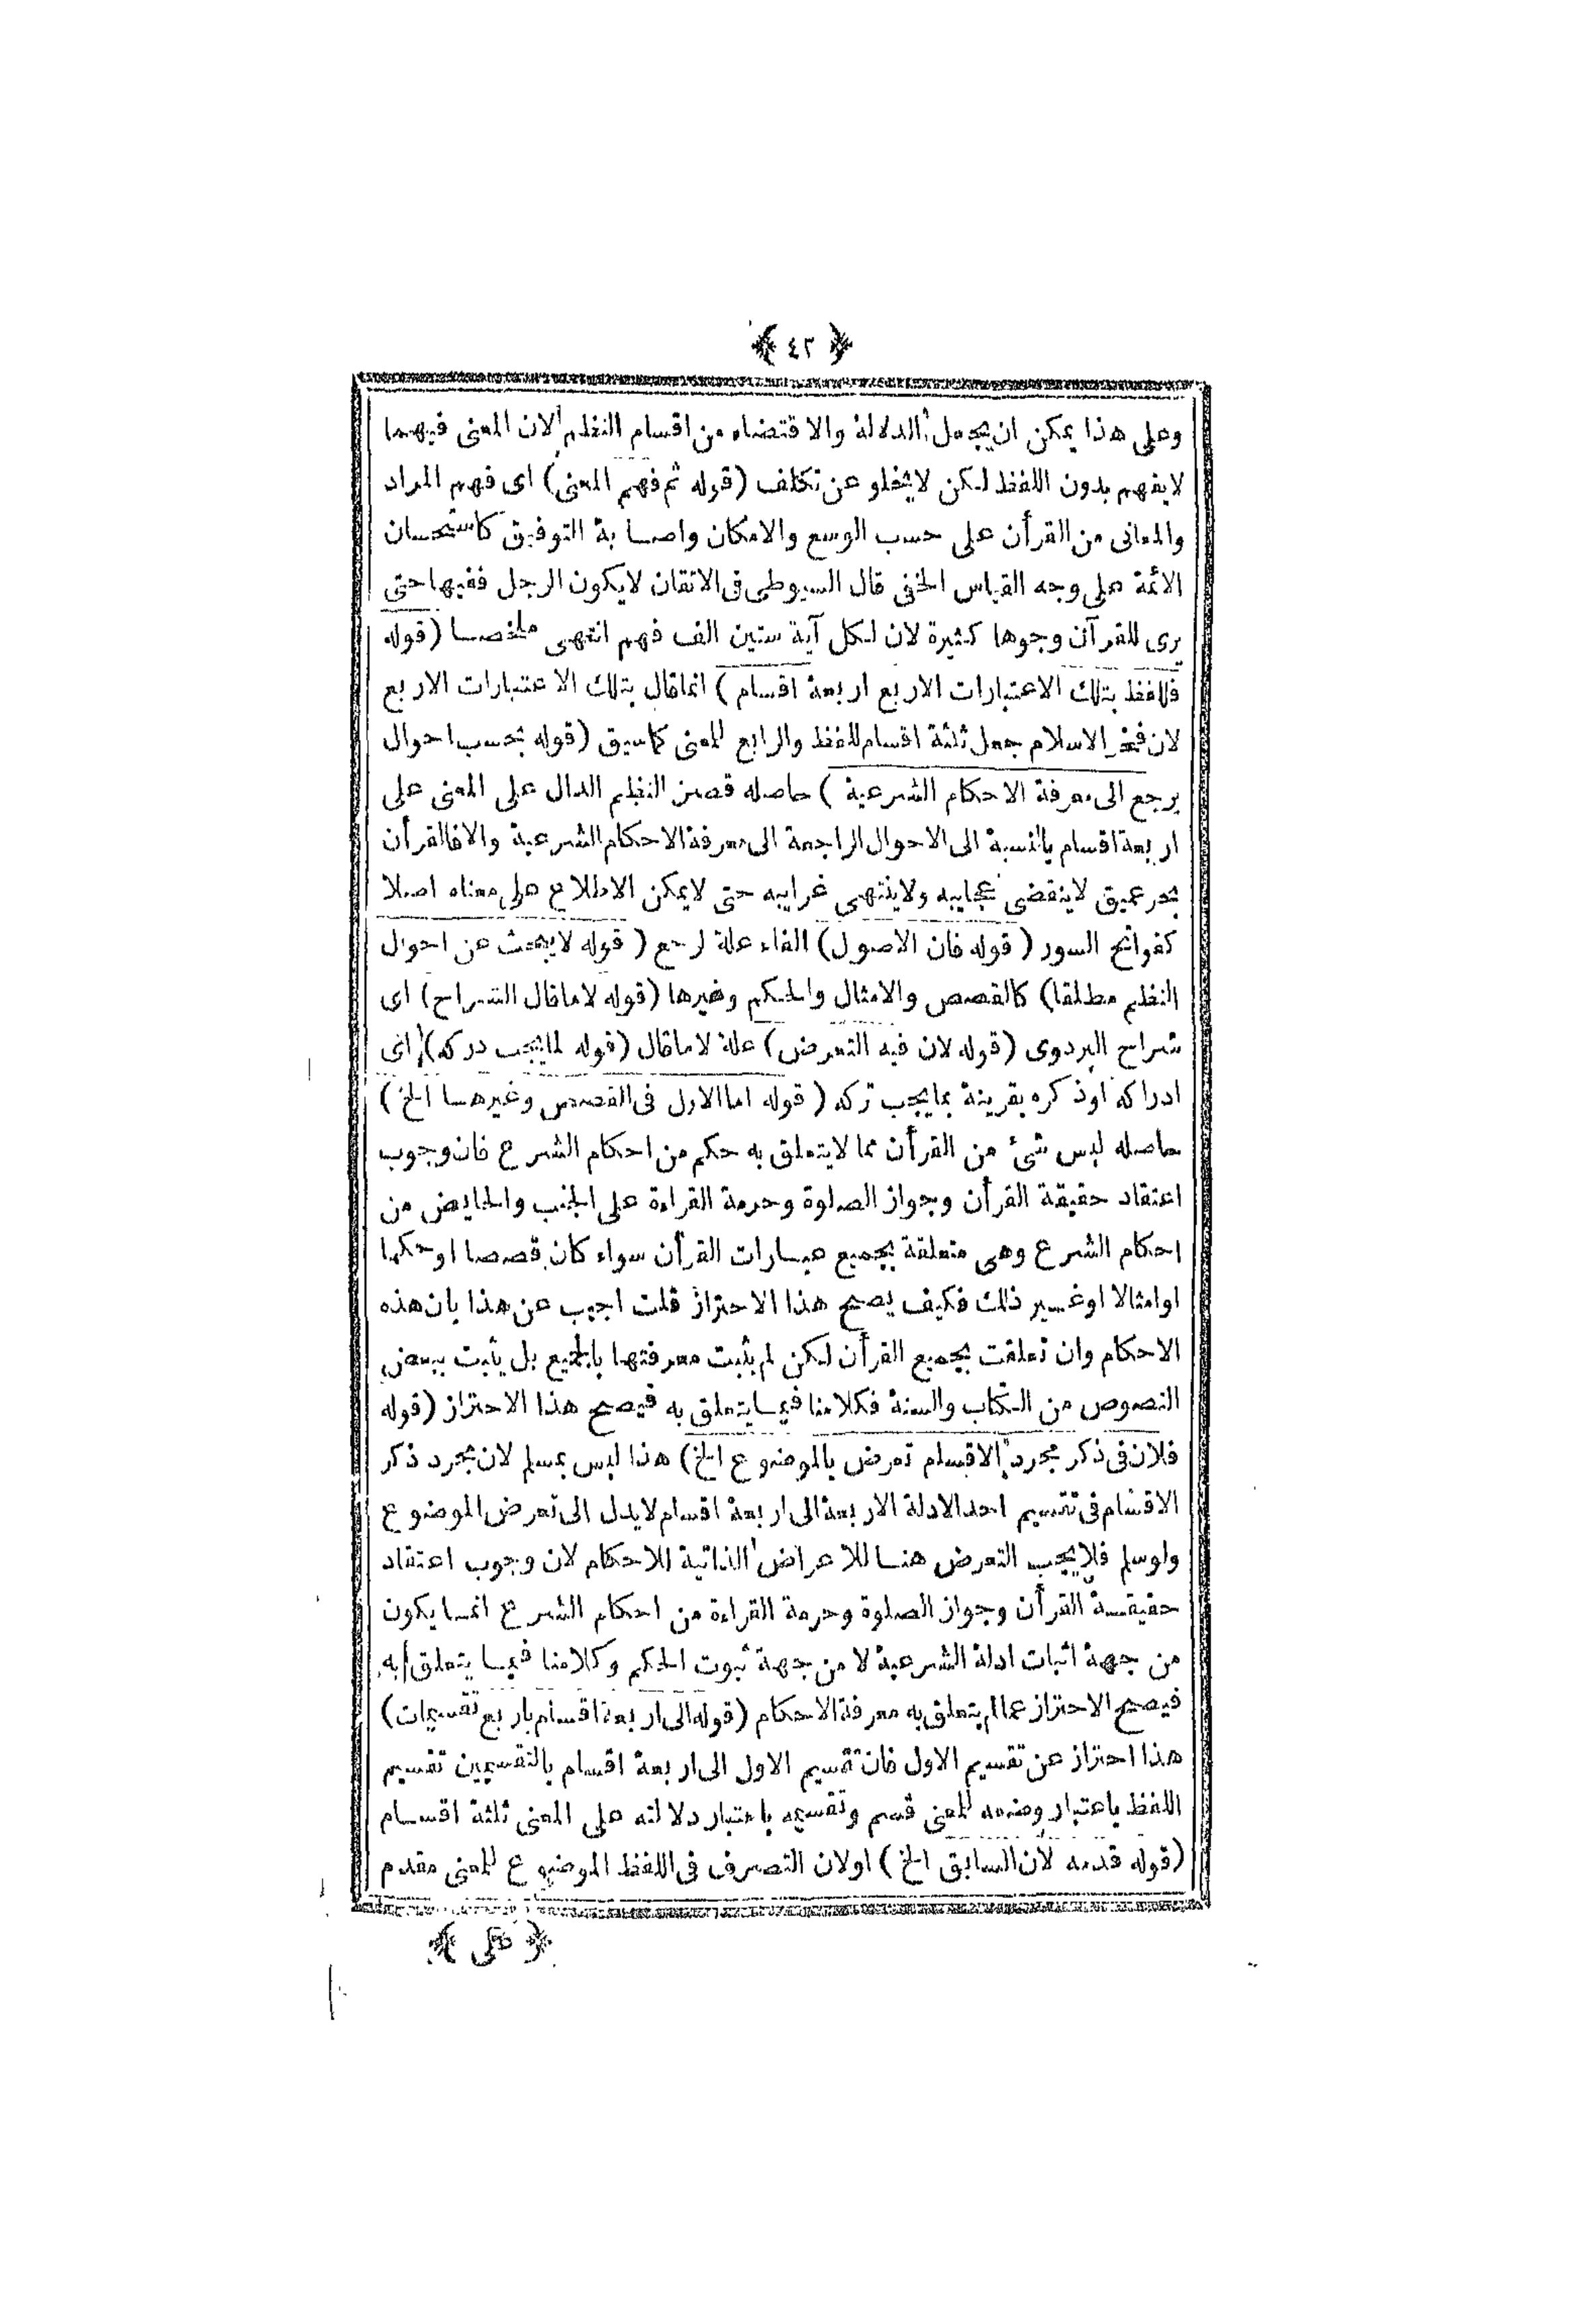 ﴿ ٤٢ ﴾
وعلى هذا يمكن ان يجعل الدلالة والاقتضاء من اقسام النظم لان المعنى فيهما
لايفهم بدون اللفظ لكن لايخلو عن تكلف (قوله ثم فهم المعنى) اى فهم المراد
والمعانى من القرأن على حسب الوسع والامكان واصابة التوفيق كاستحسان
الائمة على وجه القياس الخفى قال السيوطى فى الاتقان لايكون الرجل فقيها حتى
يرى للقرآن وجوها كثيرة لان لكل آية ستين الف فهم انتهى ملخصا (قوله
فللفظ بتلك الاعتبارات الاربع اربعة اقسام) انماقال بتلك الاعتبارات الاربع
لان فخر الاسلام جعل ثلثة اقسام للفظ والرابع للمعنى كماسبق (قوله بحسب احوال
يرجع الى معرفة الاحكام الشرعية) حاصله قصر النظم الدال على المعنى على
اربعة اقسام بالنسبة الى الاحوال الراجعة الى معرفة الاحكام الشرعية والافالقرأن
بحر عميق لاينقضى عجايبه ولاينتهى غرايبه حتى لايمكن الاطلاع على معناه اصلا
كفواتح السور (قوله فان الاصول) الفاء علة لرجع (قوله لايبحث عن احوال
النظم مطلقا) كالقصص والامثال والحكم وغيرها (قوله لاماقال الشراح) اى
شراح البزدوى (قوله لان فيه التعرض) علة لاماقال (قوله لمايجب دركه) اى
ادراكه اوذكره بقرينة بمايجب تركه (قوله اما الاول فى القصص وغيرها الخ)
حاصله ليس شئ من القرأن مما لايتعلق به حكم من احكام الشرع فان وجوب
اعتقاد حقيقة القرأن وجواز الصلوة وحرمة القراءة على الجنب والحايض من
احكام الشرع وهى متعلقة بجميع عبارات القرأن سواء كان قصصا اوحكما
اوامثالا اوغير ذلك فكيف يصح هذا الاحتراز قلت اجيب عن هذا بان هذه
الاحكام وان تعلقت بجميع القرأن لكن لم يثبت معرفتها بالجميع بل يثبت ببعض
النصوص من الكتاب والسنة فكلامنا فيمايتعلق به فيصح هذا الاحتراز (قوله
فلان فى ذكر مجرد الاقسام تعرض بالموضوع الخ) هذا ليس بمسلم لان مجرد ذكر
الاقسام فى تقسيم احد الادلة الاربعة الى اربعة اقسام لايدل الى تعرض الموضوع
ولوسلم فلايجب التعرض هنا للاعراض الذاتية للاحكام لان وجوب اعتقاد
حقيقة القرأن وجواز الصلوة وحرمة القراءة من احكام الشرع انما يكون
من جهة اثبات ادلة الشرعية لا من جهة ثبوت الحكم وكلامنا فيما يتعلق به
فيصح الاحتراز عمالم يتعلق به معرفة الاحكام (قوله الى اربعة اقسام باربع تقسيمات)
هذا احتراز عن تقسيم الاول فان تقسيم الاول الى اربعة اقسام بالتقسيمين تقسيم
اللفظ باعتبار وضعه للمعنى قسم وتقسيمه باعتبار دلالته على المعنى ثلثة اقسام
(قوله قدمه لان السابق الخ) اولان التصرف فى اللفظ الموضوع للمعنى مقدم
﴿ على ﴾